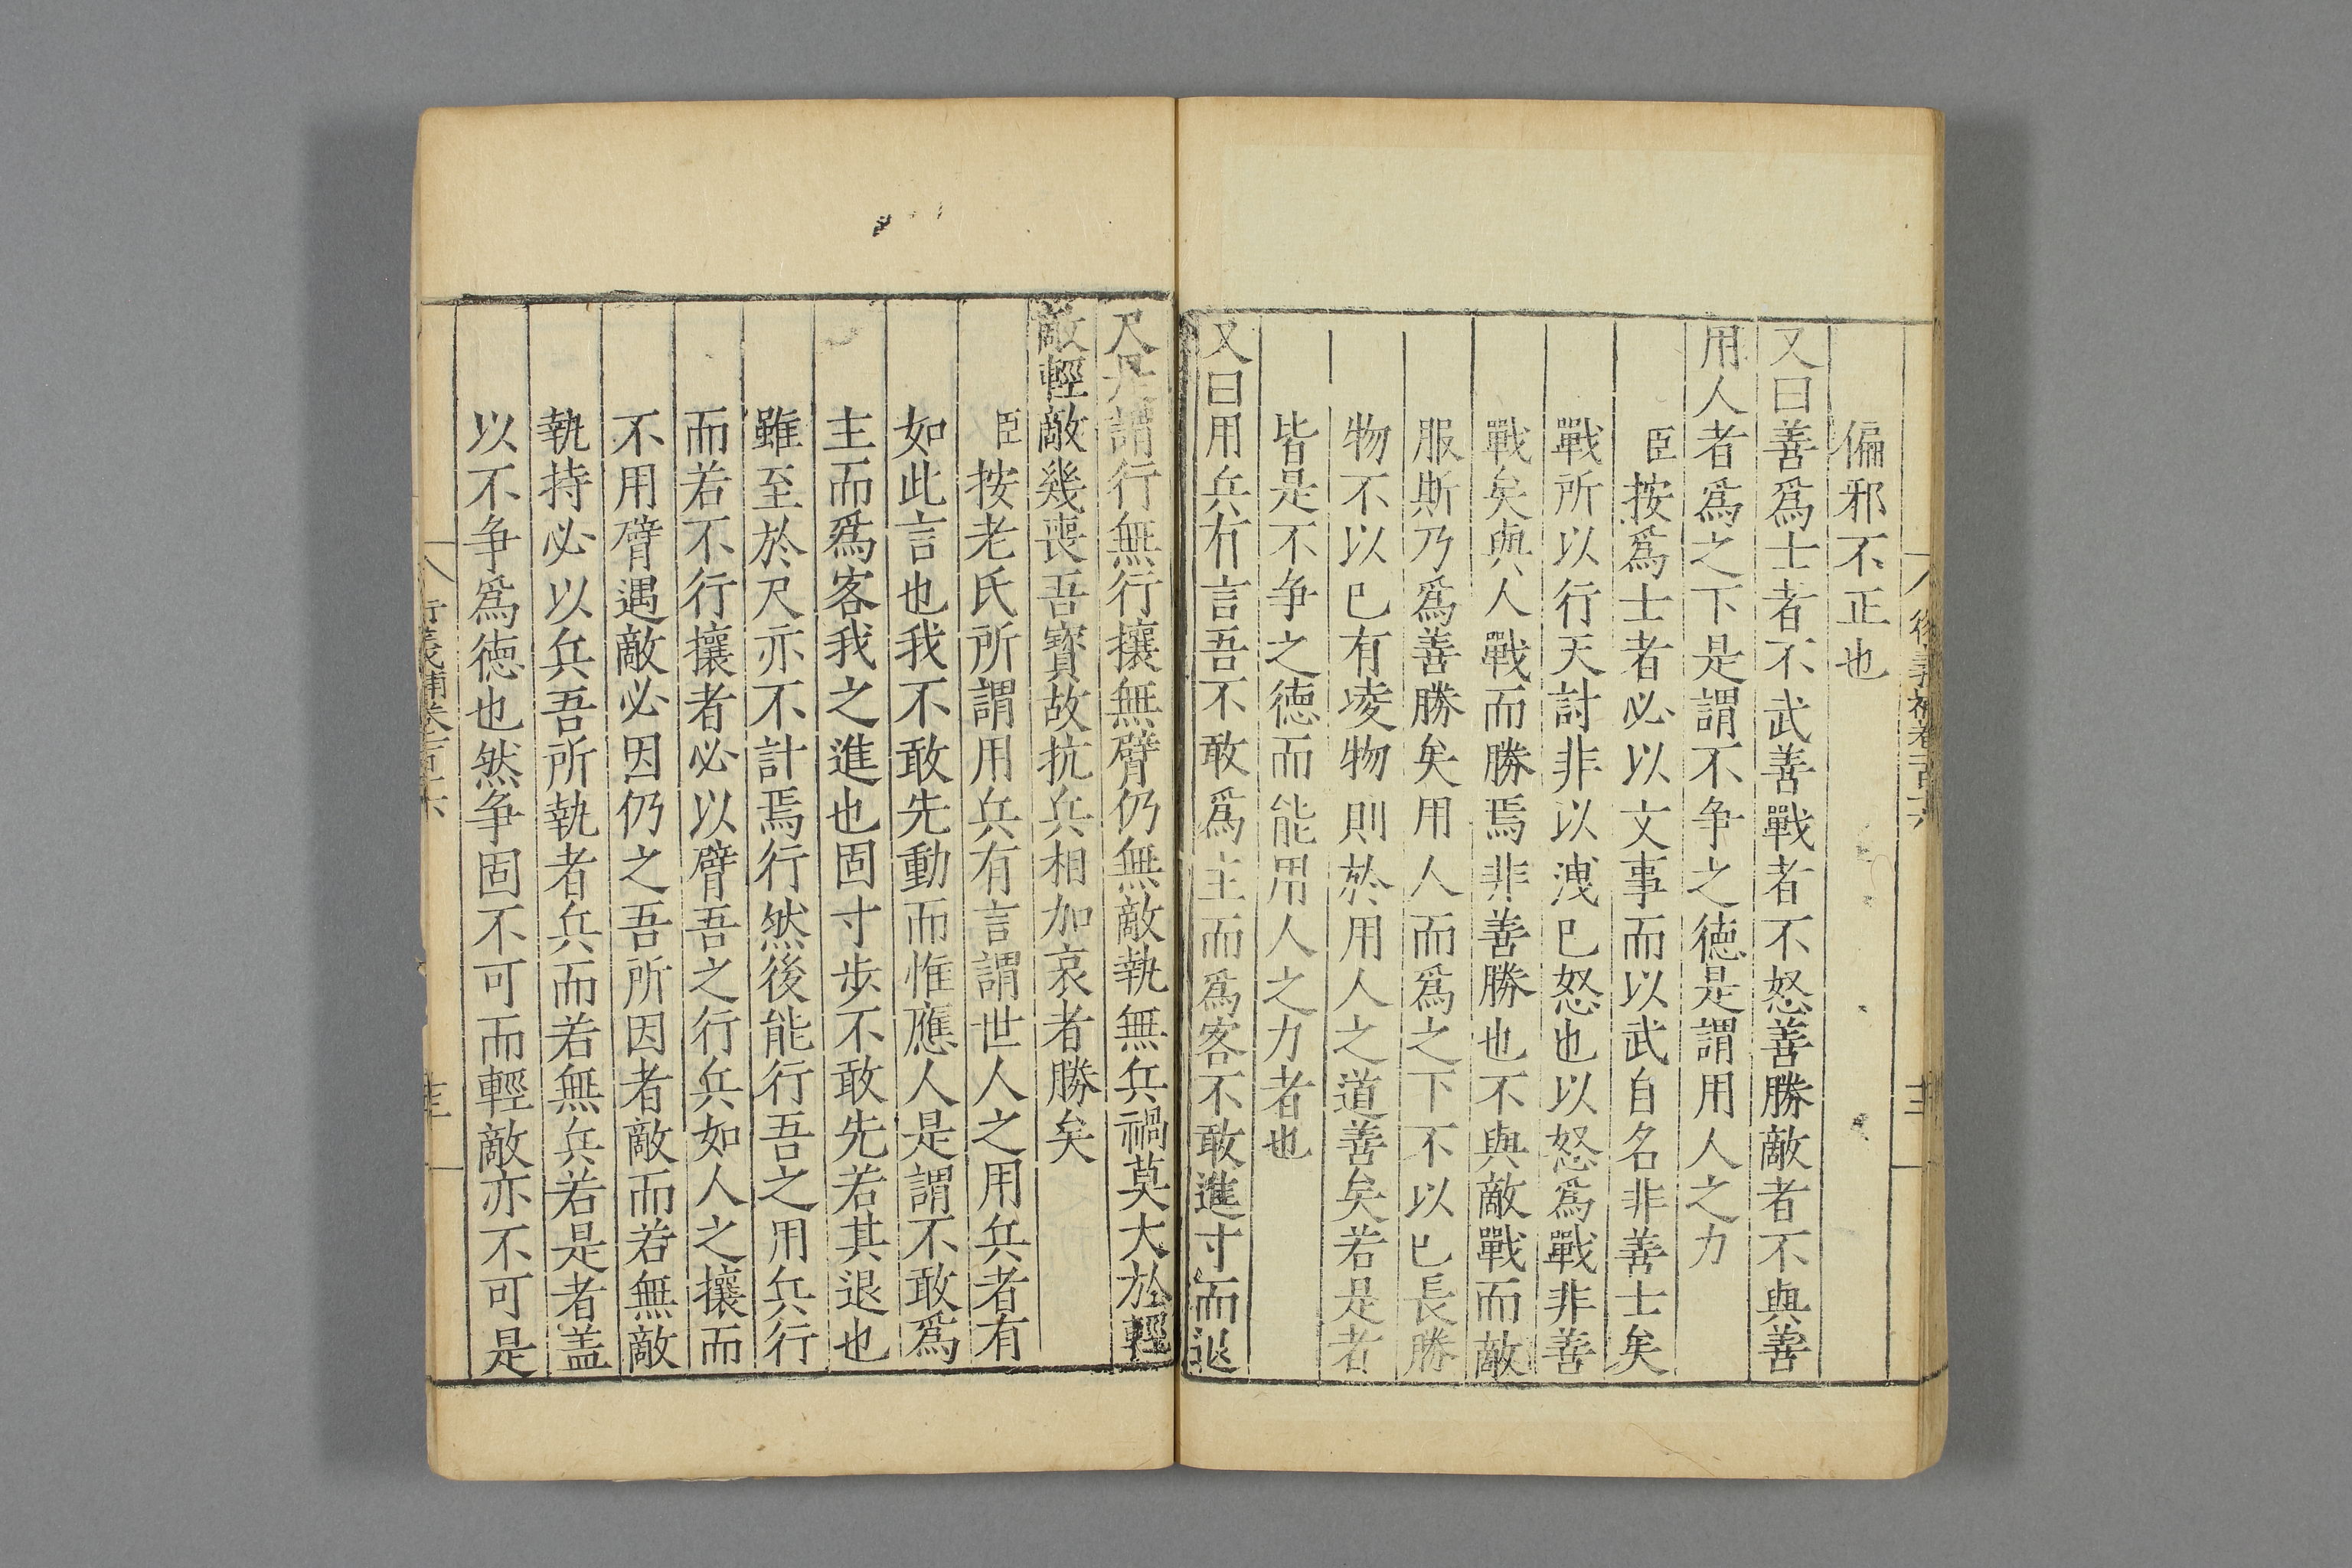 偏邪不正也
又曰善爲士者不武善戰者不怒善勝敵者不與善
用人者爲之下是謂不争之德是謂用人之力
臣按爲士者必以文事而以武自名非善士矣
戰所以行天討非以洩已怒也以怒爲戰非善
戰矣與人戰而勝焉非善勝也不與敵戰而敵
服斯乃爲善勝矣用人而爲之下不以已長勝
物不以已有凌物則於用人之道善矣若是者
皆是不争之德而能用人之力者也
又曰用兵有言吾不敢爲主而爲客不敢進寸而退
尺是謂行無行攘無臂仍無敵執無兵禍莫大於輕
敵輕敵幾喪吾寳故抗兵相加哀者勝矣
臣按老氏所謂用兵有言謂世人之用兵者有
如此言也我不敢先動而惟應人是謂不敢爲
主而爲客我之進也固寸步不敢先若其退也
雖至於尺亦不計焉行然後能行吾之用兵行
而若不行攘者必以臂吾之行兵如人之攘而
不用臂遇敵必因仍之吾所因者敵而若無敵
執持必以兵吾所執者兵而若無兵若是者盖
以不争爲德也然争固不可而輕敵亦不可是